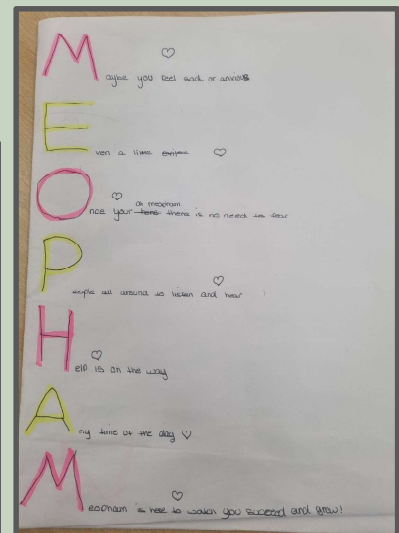 Maybe you feel sad or anxious
Even a little
Once your at meopham there is no need to fear
People all around to listen and hear
Help is on the way
Any time of the day
Meopham is here to watch you succeed and grow!